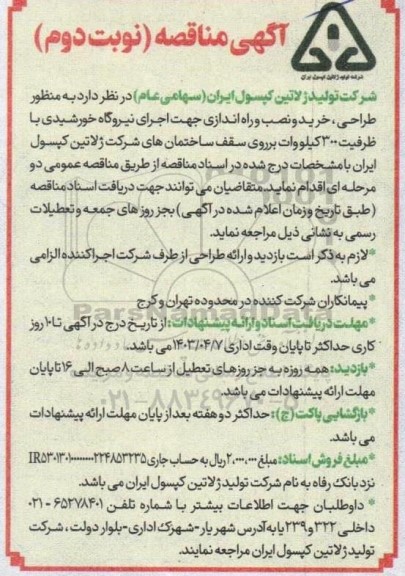 آگهی مناقصه (نوبت دوم)
شرکت تولید ژلاتین کپسول ایران
شرکت تولید ژلاتین کپسول ایران (سهامی عام) در نظر دارد به منظور
طراحی، خرید و نصب و راه اندازی جهت اجرای نیروگاه خورشیدی با
ظرفیت ۳۰۰ کیلووات بر روی سقف ساختمان های شرکت ژلاتین کپسول
ایران با مشخصات درج شده در اسناد مناقصه از طریق مناقصه عمومی دو
مرحله ای اقدام نماید. متقاضیان می توانند جهت دریافت اسناد مناقصه
(طبق تاریخ و زمان اعلام شده در آگهی) بجز روز های جمعه و تعطیلات
رسمی به نشانی ذیل مراجعه نماید.
*لازم به ذکر است بازدید و ارائه طراحی از طرف شرکت اجرا کننده الزامی
می باشد.
*پیمانکاران شرکت کننده در محدوده تهران و کرج
*مهلت دریافت اسناد و ارائه پیشنهادات: از تاریخ درج در آگهی تا ۱۰ روز
کاری حداکثر تا پایان وقت اداری ۱۴۰۳/۰۴/۷ می باشد.
*بازدید: همه روزه به جز روزهای تعطیل از ساعت ۸ صبح الی ۱۶ تا پایان
مهلت ارائه پیشنهادات می باشد.
*بازگشایی پاکت (ج): حداکثر دو هفته بعد از پایان مهلت ارائه پیشنهادات
می باشد.
*مبلغ فروش اسناد: مبلغ ۲,۰۰۰,۰۰۰ ریال به حساب جاری
نزد بانک رفاه به نام شرکت تولید ژلاتین کپسول ایران می باشد.
*داوطلبان جهت اطلاعات بیشتر با شماره تلفن ۶۵۲۷۸۴۰۱-۰۲۱
داخلی ۳۲۲ و ۲۳۹ یا به آدرس شهریار-شهرک اداری-بلوار دولت، شرکت
تولید ژلاتین کپسول ایران مراجعه نمایند.
ParsNamadData
۰۲۱-۸۸۳۴۹۶۷۰-۵